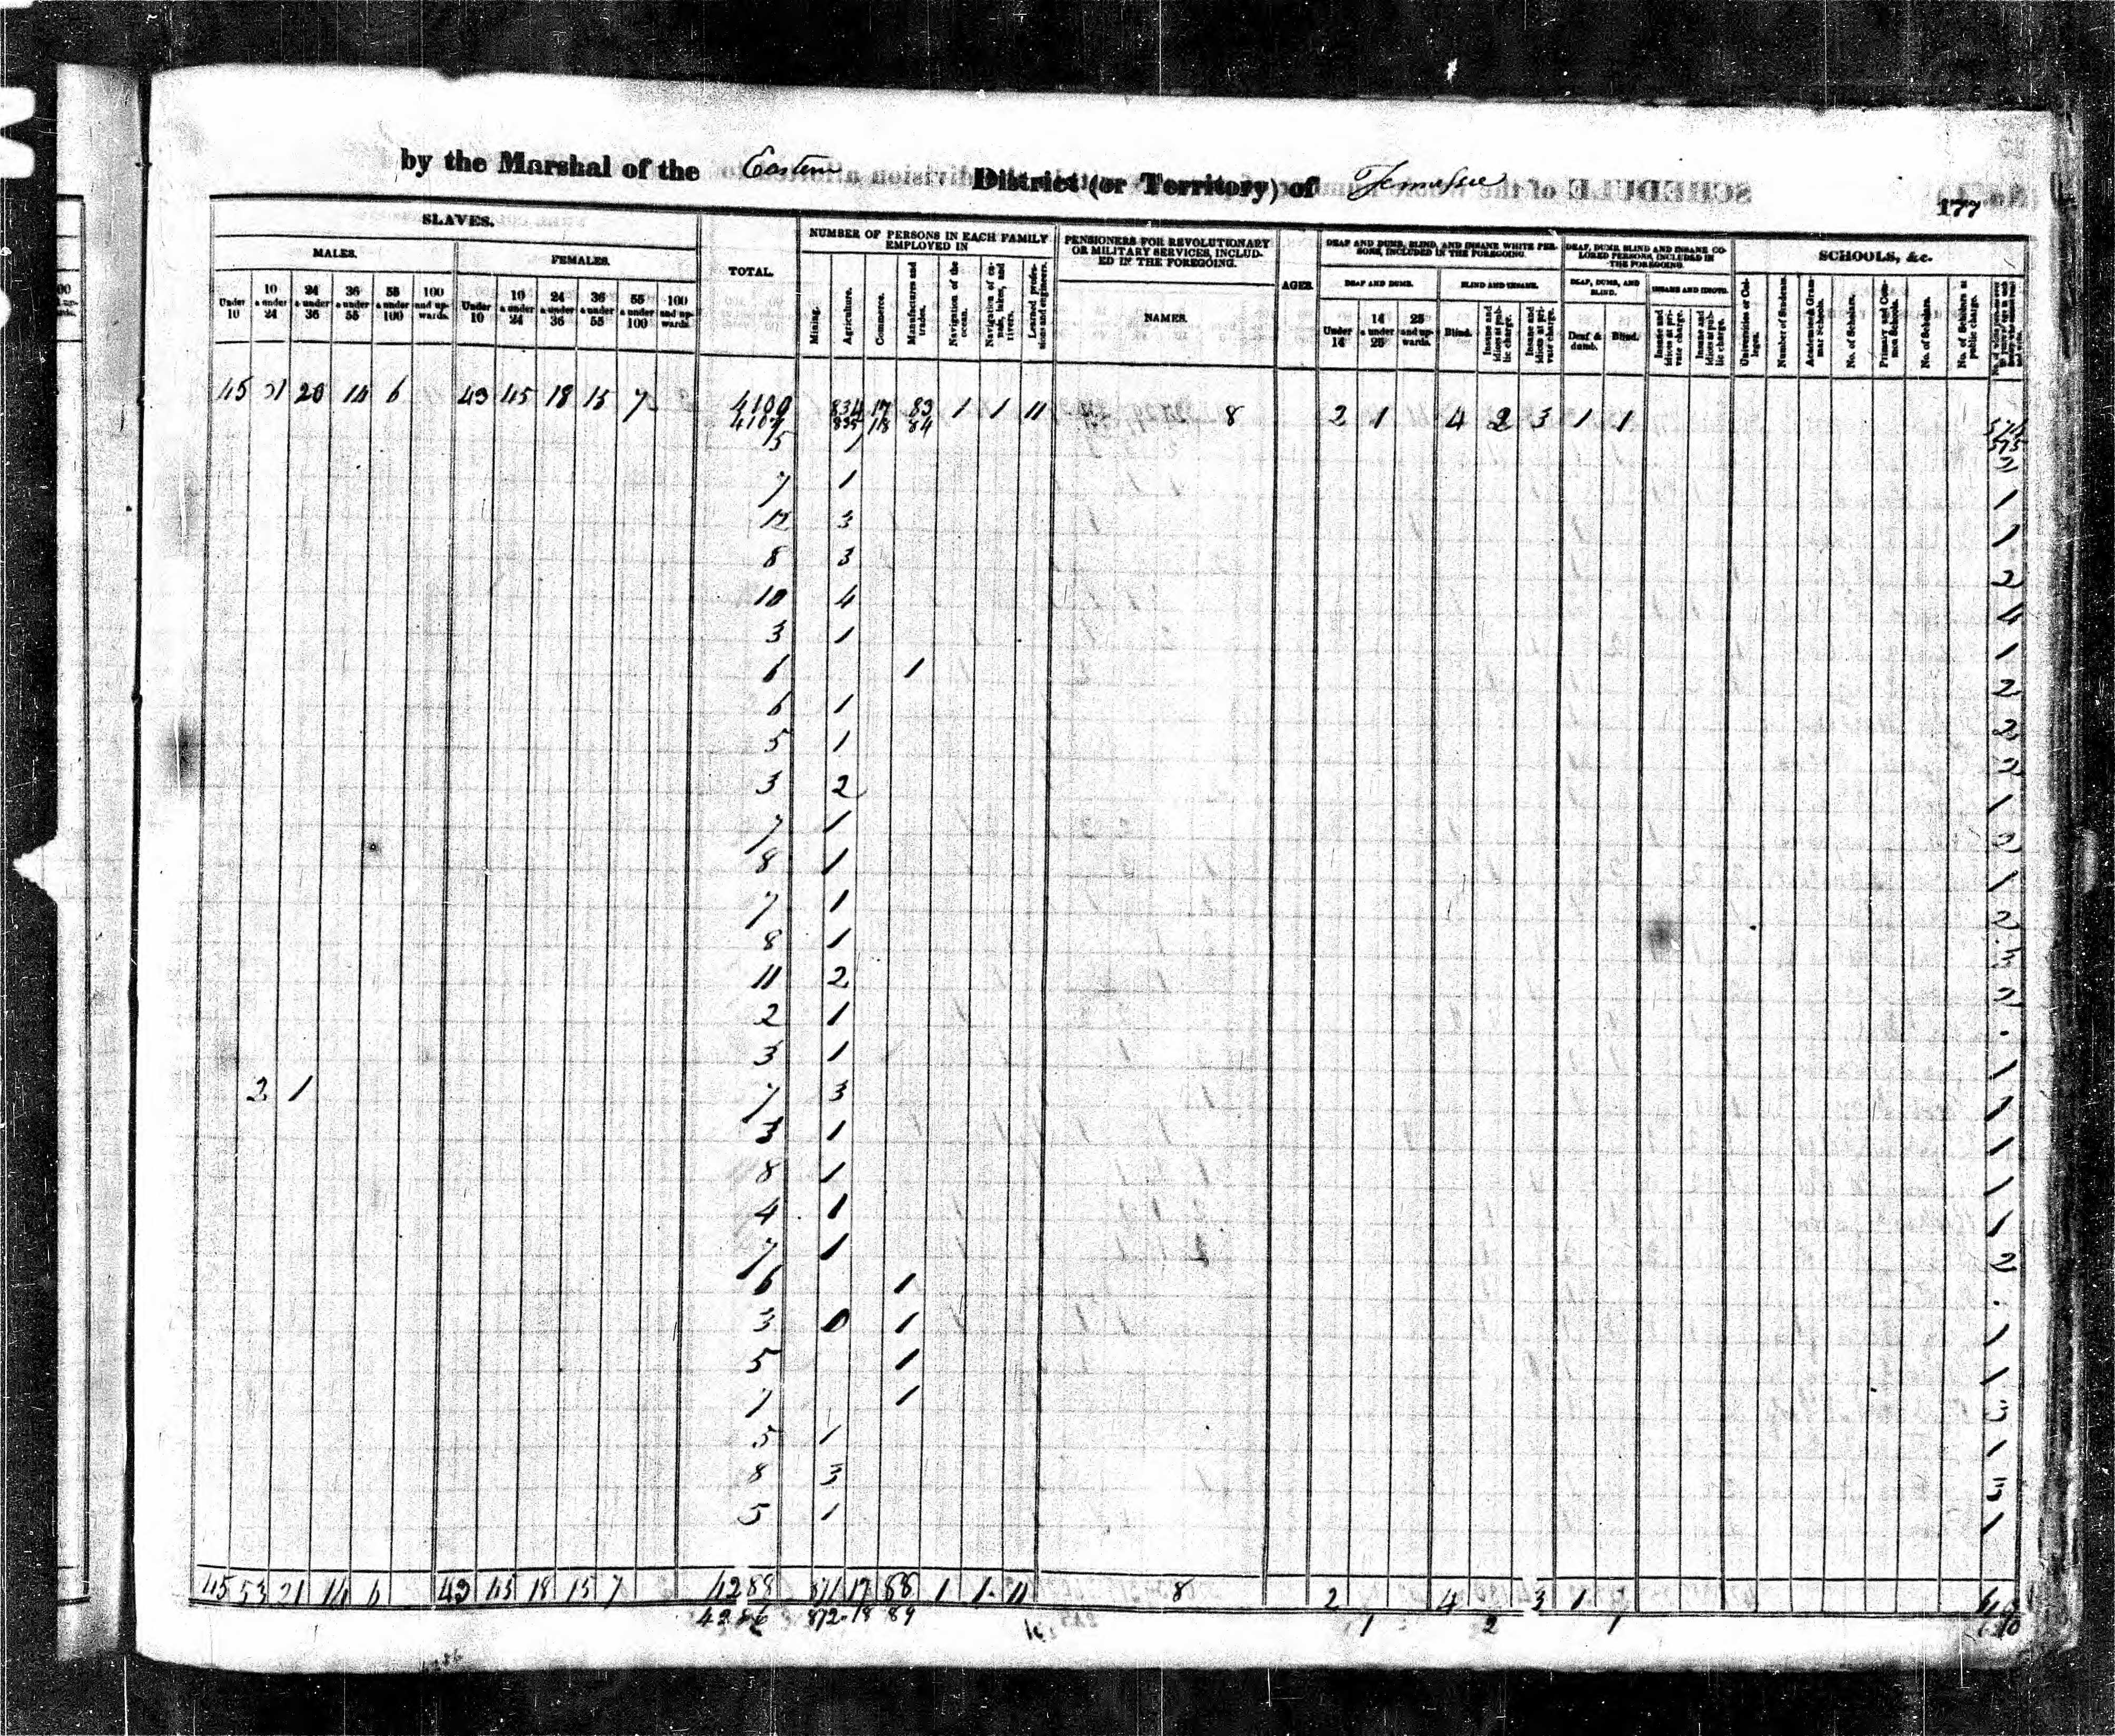 by the Marshal of the Eastern District (or Territory) of Tennessee
177
SLAVES.
MALES.
FEMALES.
Under 10
10 & under 24
24 & under 36
36 & under 55
55 & under 100
100 and upwards.
Under 10
10 & under 24
24 & under 36
36 & under 55
55 & under 100
100 and upwards
TOTAL.
NUMBER OF PERSONS IN EACH FAMILY EMPLOYED IN
Mining.
Agriculture.
Commerce.
Manufactures and trades.
Navigation of the ocean.
Navigation of canals, lakes, and rivers.
Learned professions and engineers.
PENSIONERS FOR REVOLUTIONARY OR MILITARY SERVICES, INCLUDED IN THE FOREGOING.
NAMES.
AGES.
DEAF AND DUMB, BLIND, AND INSANE WHITE PERSONS, INCLUDED IN THE FOREGOING.
DEAF AND DUMB.
Under 14
14 & under 25
25 and upwards.
BLIND AND INSANE.
Blind.
Insane and idiots at public charge.
Insane and idiots at private charge.
DEAF, DUMB, BLIND AND INSANE COLORED PERSONS, INCLUDED IN THE FOREGOING.
DEAF, DUMB, AND BLIND.
Deaf & dumb.
Blind.
INSANE AND IDIOTS.
Insane and idiots at private charge.
Insane and idiots at public charge.
SCHOOLS, &c.
Universities or Colleges.
Number of Students.
Academies & Grammar Schools.
No. of Scholars.
Primary and Common Schools.
No. of Scholars.
No. of Scholars at public charge.
45 31 20 14 6 43 45 18 15 7 4100 834 17 83 1 1 11 8 2 1 4 2 3 1 1 574
4101 835 18 84 575
15 1 3
7 1 1
12 3 1
8 3 2
10 4 4
3 1 1
6 1 2
6 1 2
5 1 2
3 2 1
7 1 2
8 1 1
7 1 2
8 1 3
11 2 2
2 1
3 1 1
2 1 7 3 1
3 1 1
8 1 1
4 1 1
7 1 2
6 1
3 0 1 1
5 1 1
7 1
5 1 1
8 3
5 1 1
45 53 21 14 6 43 45 18 15 7 4288 871 17 88 1 1 11 8 2 4 3 1
4286 872 18 89 1 2 1